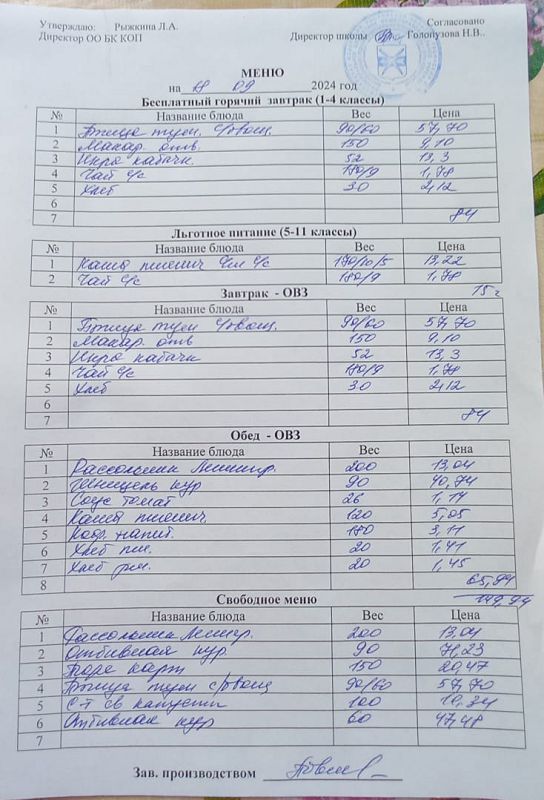 Утверждаю: Рыжкина Л.А.
Согласовано
Директор ОО БК КОП
Директор школы Голопузова Н.В..
МЕНЮ
на 18 09 2024 год
Бесплатный горячий завтрак (1-4 классы)
№ Название блюда Вес Цена
1 Птица туш. с/овощ. 90/60 57,70
2 Макар. отв. 150 9,10
3 Икра кабачк. 52 13,3
4 Чай с/с 180/9 1,78
5 Хлеб 30 2,12
6
7 84
Льготное питание (5-11 классы)
№ Название блюда Вес Цена
1 Каша пшенич с/м с/с 170/10/5 13,22
2 Чай с/с 180/9 1,78
15
Завтрак - ОВЗ
№ Название блюда Вес Цена
1 Птица туш с/овощ. 90/60 57,70
2 Макар. отв 150 9,10
3 Икра кабачк 52 13,3
4 Чай с/с 180/9 1,78
5 Хлеб 30 2,12
6
7 84
Обед - ОВЗ
№ Название блюда Вес Цена
1 Рассольник Ленингр. 200 13,04
2 Шницель кур 90 40,74
3 Соус томат 26 1,14
4 Каша пшенич. 120 5,05
5 напит. 180 3,11
6 Хлеб пш. 20 1,41
7 Хлеб рж. 20 1,45
8 65,94
149,94
Свободное меню
№ Название блюда Вес Цена
1 Рассольник Ленингр. 200 13,04
2 Отбивная кур 90 71,23
3 Пюре карт 150 20,47
4 Птица туш с/овощ 90/60 57,70
5 С-т св капусты 100 10,34
6 Отбивная кур 60 47,48
7
Зав. производством